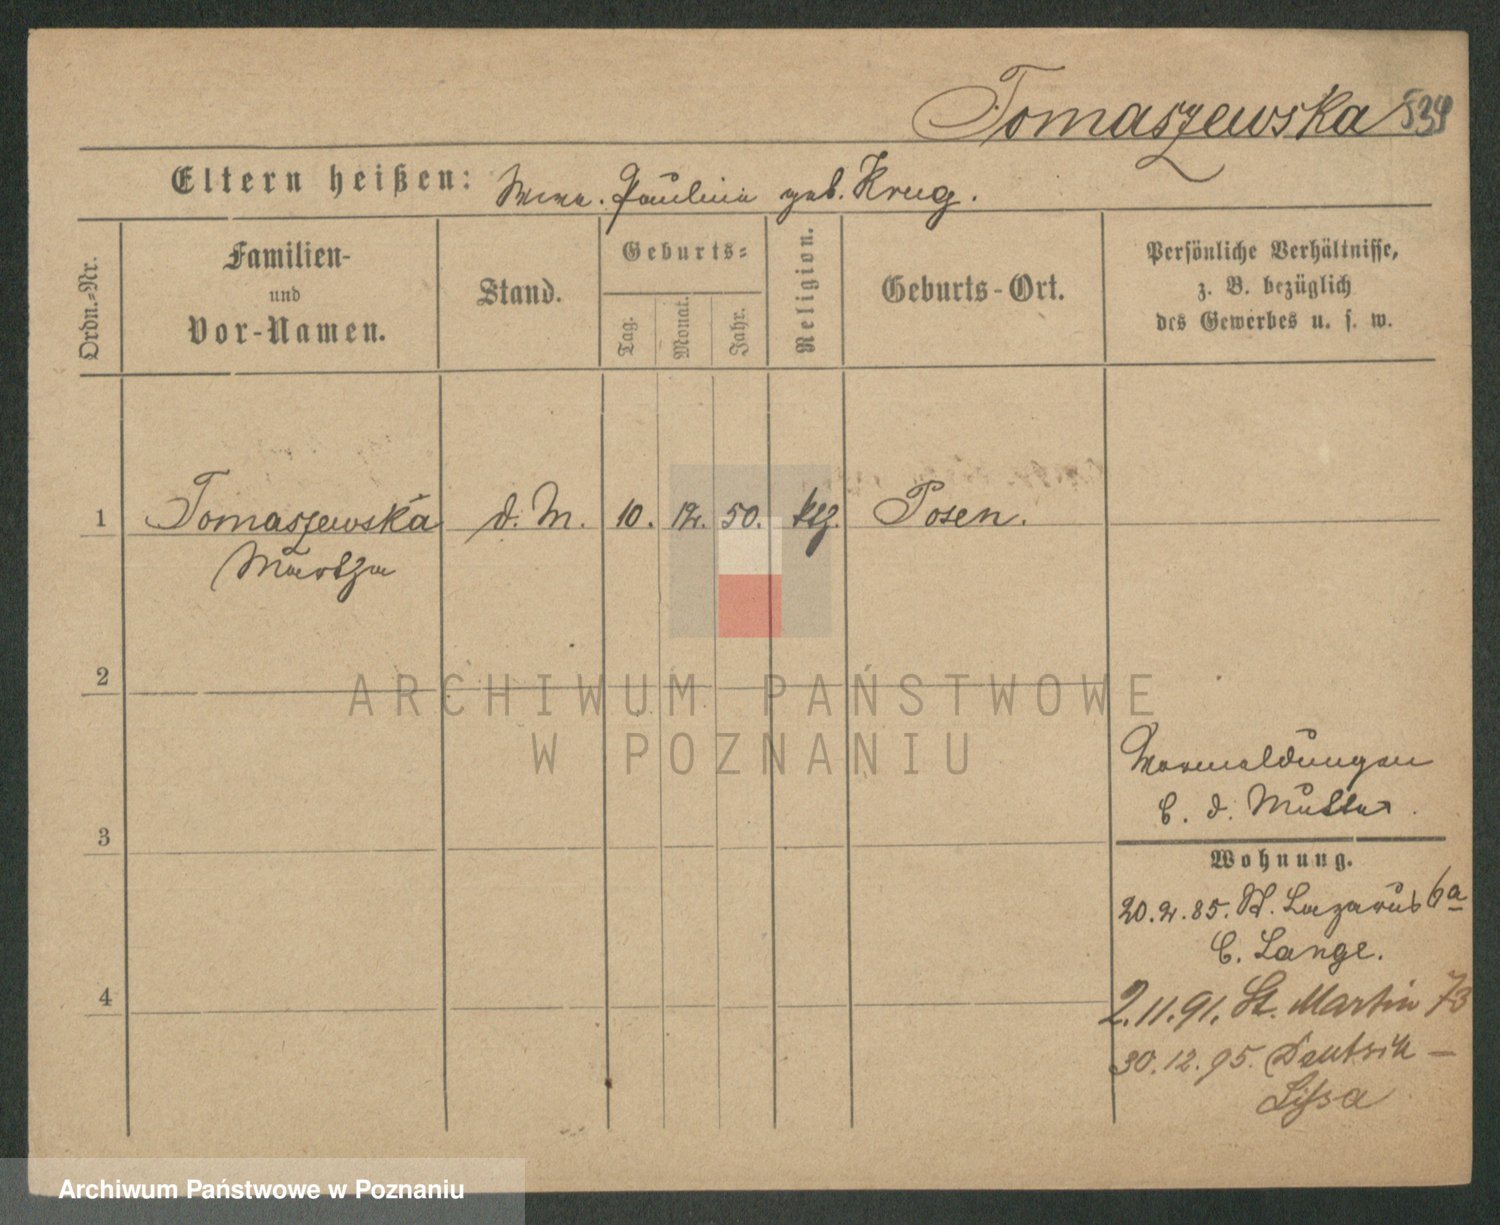 Tomaszewska 534
Eltern heißen: Wwe. Paulina geb. Krug.
Ordn.-Nr.
Familien-
und
Vor-Namen.
Stand.
Geburts-
Tag.
Monat.
Jahr.
Religion.
Geburts-Ort.
Persönliche Verhältnisse,
z. B. bezüglich
des Gewerbes u. s. w.
1 Tomaszewska d. M. 10. 12. 50. ktz. Posen.
Martha
2
3
4
Vormeldungen
b. d. Mutter.
Wohnung.
20.2.85. St. Lazarus 6a
b. Lange.
2.11.91. St. Martin 73
30.12.95. Deutsch-
Lissa
ARCHIWUM PAŃSTWOWE
W POZNANIU
Archiwum Państwowe w Poznaniu